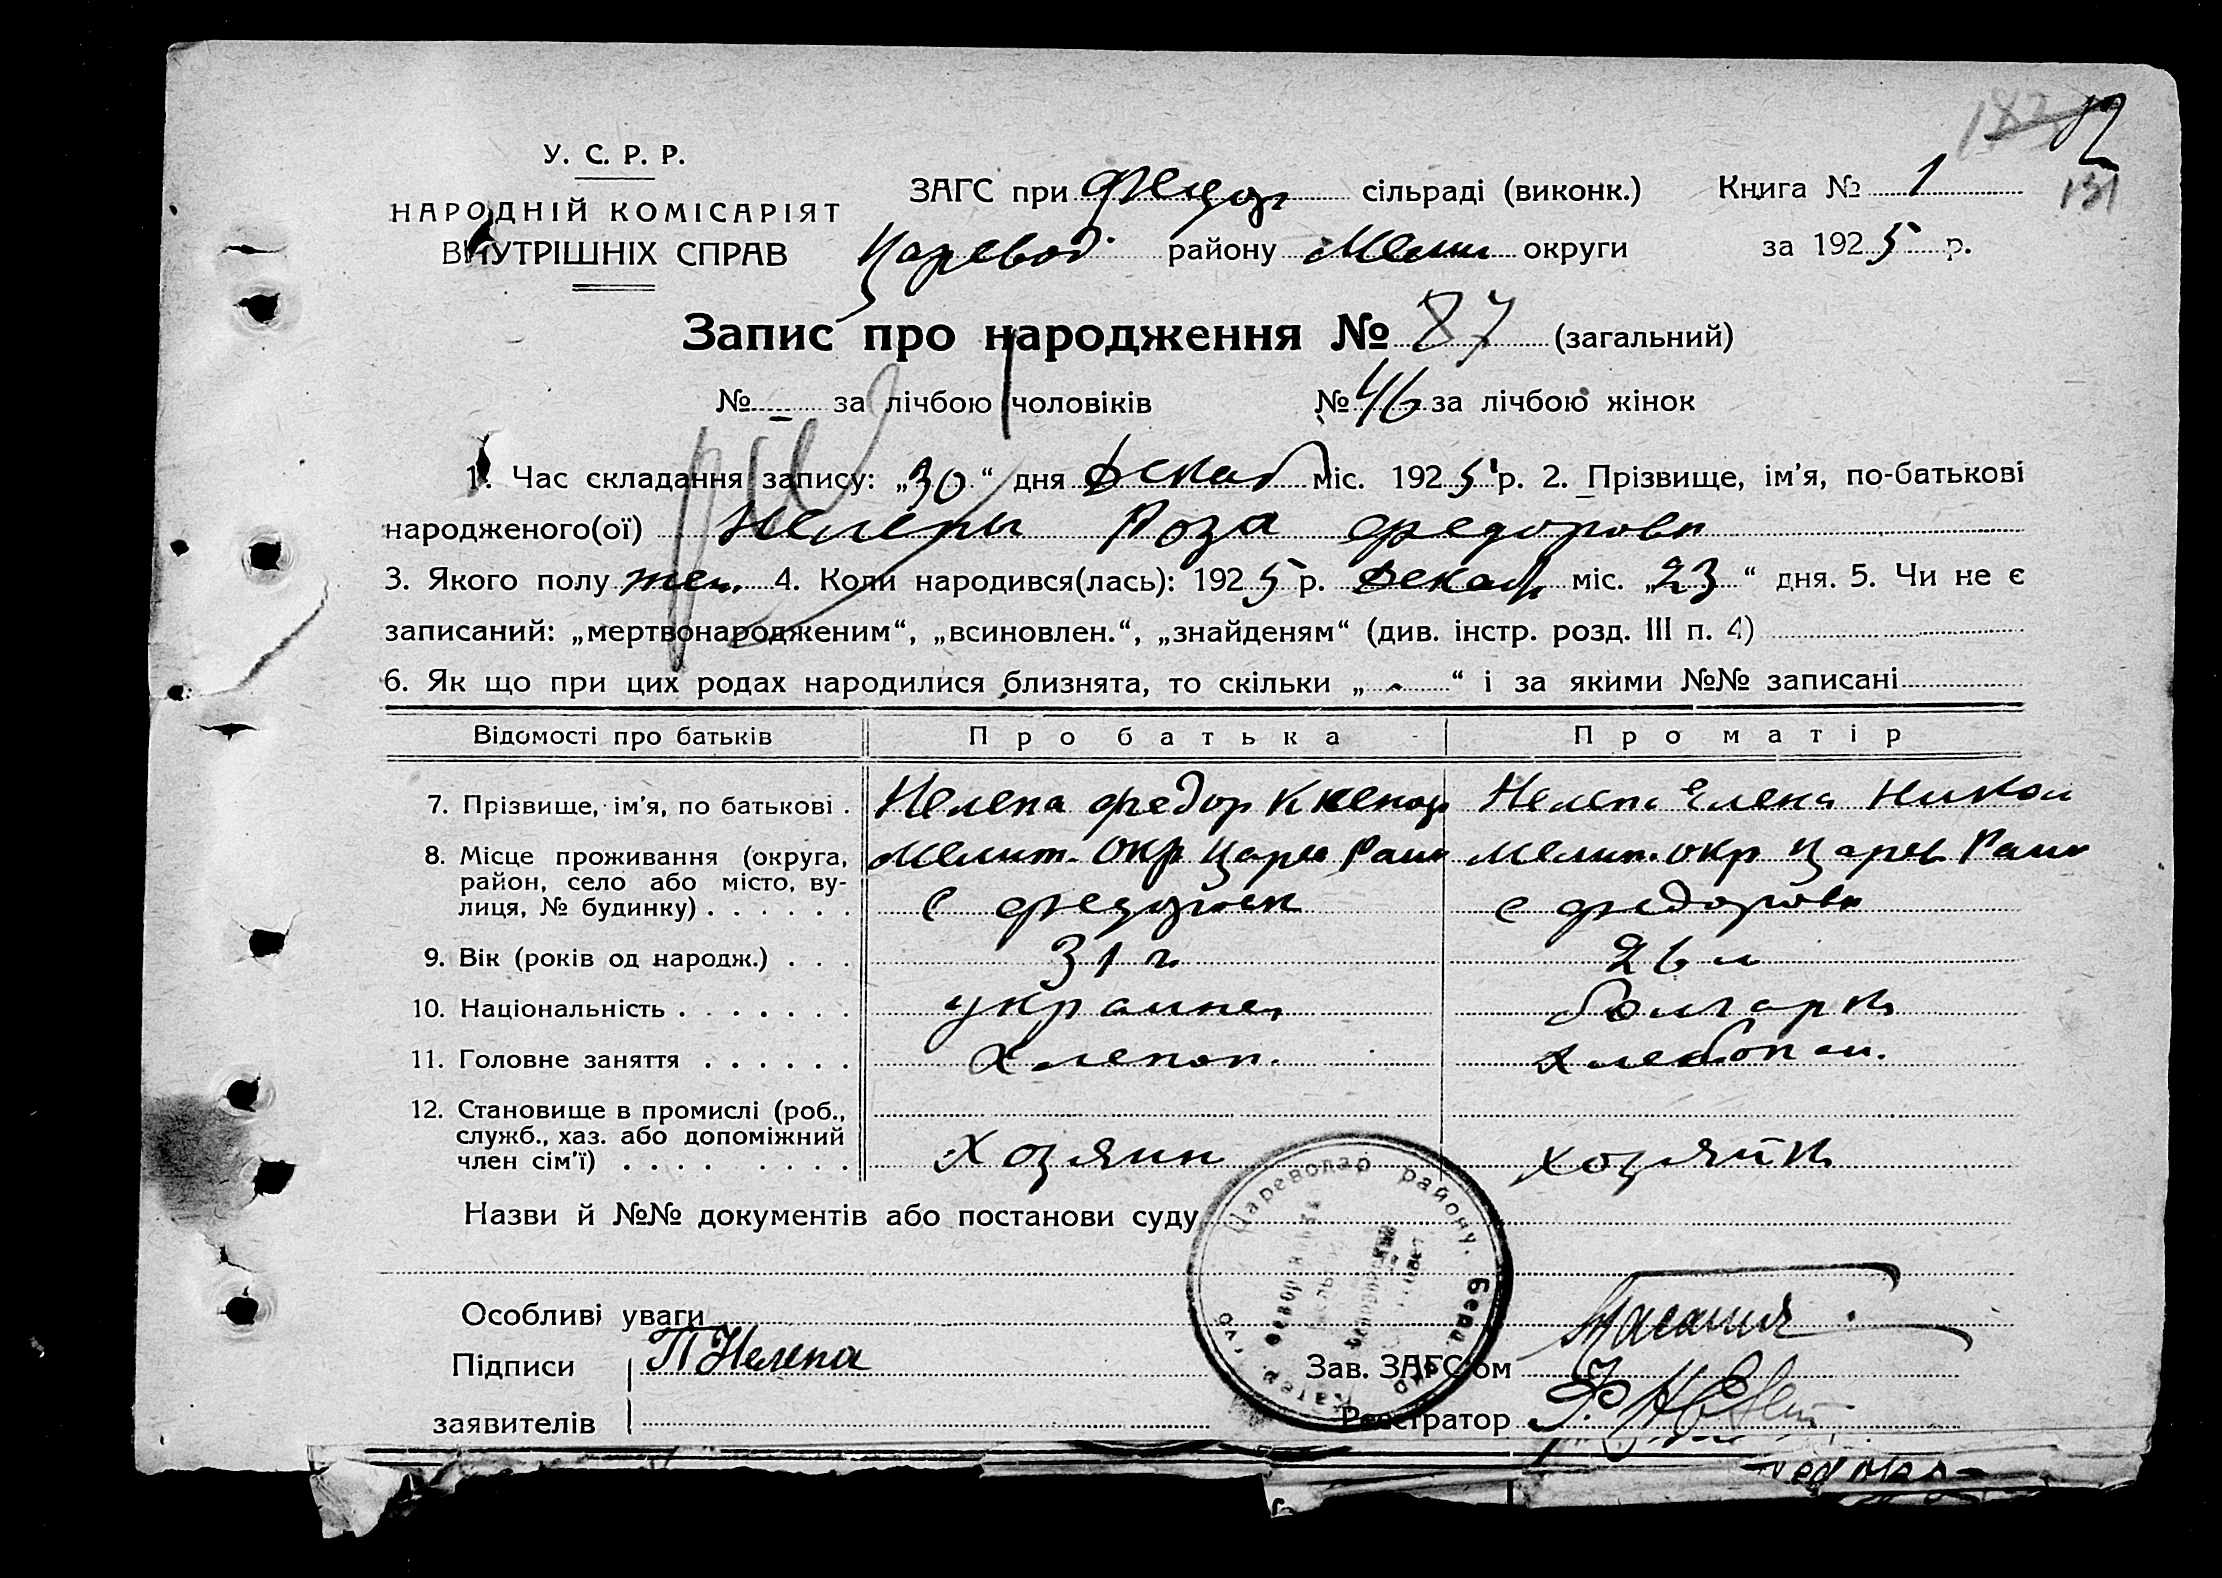 182
131
У. С. Р. Р.
НАРОДНІЙ КОМІСАРІЯТ
ВНУТРІШНІХ СПРАВ
ЗАГС при Федор сільраді (виконк.) Книга № 1
Царевод. району Мелит округи за 1925 р.
Запис про народження № 87 (загальний)
№ - за лічбою чоловіків № 46 за лічбою жінок
1. Час складання запису: „30“ дня Декаб міс. 1925 р. 2. Прізвище, ім'я, по-батькові
народженого(ої) Нелепы Роза Федоровн
3. Якого полу жен. 4. Коли народився(лась): 1925 р. Декаб міс. „23“ дня. 5. Чи не є
записаний: „мертвонародженим“, „всиновлен.“, „знайденям“ (див. інстр. розд. III п. 4)
6. Як що при цих родах народилися близнята, то скільки „-“ і за якими №№ записані
Відомості про батьків Про батька Про матір
7. Прізвище, ім'я, по батькові . Нелепа Федор Нелепа Елена Никол
8. Місце проживання (округа, район, село або місто, вулиця, № будинку) . . . . . . Мелит. Окр Царев Раин Мелит. окр Царев Раин
с с Федоровк
9. Вік (років од народж.) . . . 31 г. 26 л
10. Національність . . . . . . . украинец болгарк
11. Головне заняття . . . . . . Хлепоп. Хлебопаш.
12. Становище в промислі (роб., служб., хаз. або допоміжний член сім'ї) . . . . . . . . хозяин хозяйк
Назви й №№ документів або постанови суду
Цареводар району, Берд
Особливі уваги
Підписи П Нелепа Зав. ЗАГС'ом
заявителів Реєстратор